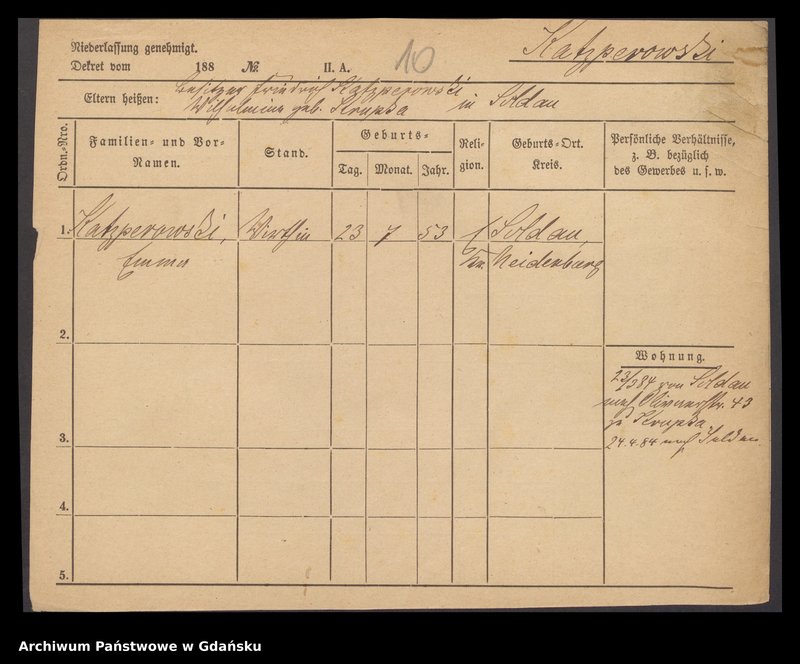 Niederlassung genehmigt.
Dekret vom 188 No. II. A.
10
Katzperowski
Eltern heißen: Besitzer Friedrich Katzperowski
Wilhelmine geb. Krupka in Soldau
Ordn.-Nro.
Familien- und Vor-
Namen.
Stand.
Geburts-
Tag. Monat. Jahr.
Reli-
gion.
Geburts-Ort.
Kreis.
Persönliche Verhältnisse,
z. B. bezüglich
des Gewerbes u. s. w.
1. Katzperowski, Wirthin 23 7 53 Soldau,
Emma Kr. Neidenburg
2.
Wohnung.
23/384 von Soldau
nach Olivaerstr. 43
zu Krupka.
24.4.84 nach Soldau
3.
4.
5.
Archiwum Państwowe w Gdańsku